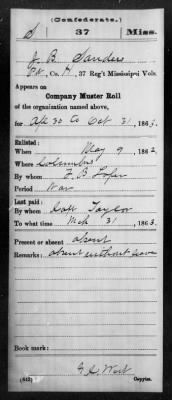 (Confederate.)
S 37 Miss.
J. B. Sanders
Co. H, 37 Reg't Mississippi Vols.
Appears on
Company Muster Roll
of the organization named above,
for Apr 30 to Oct 31, 1863.
Enlisted:
When May 9, 1862.
Where Columbus
By whom F. B. Loper
Period War
Last paid:
By whom Capt Taylor
To what time Mch 31, 1863.
Present or absent absent
Remarks: absent without leave
Book mark:
West
(642) Copyist.